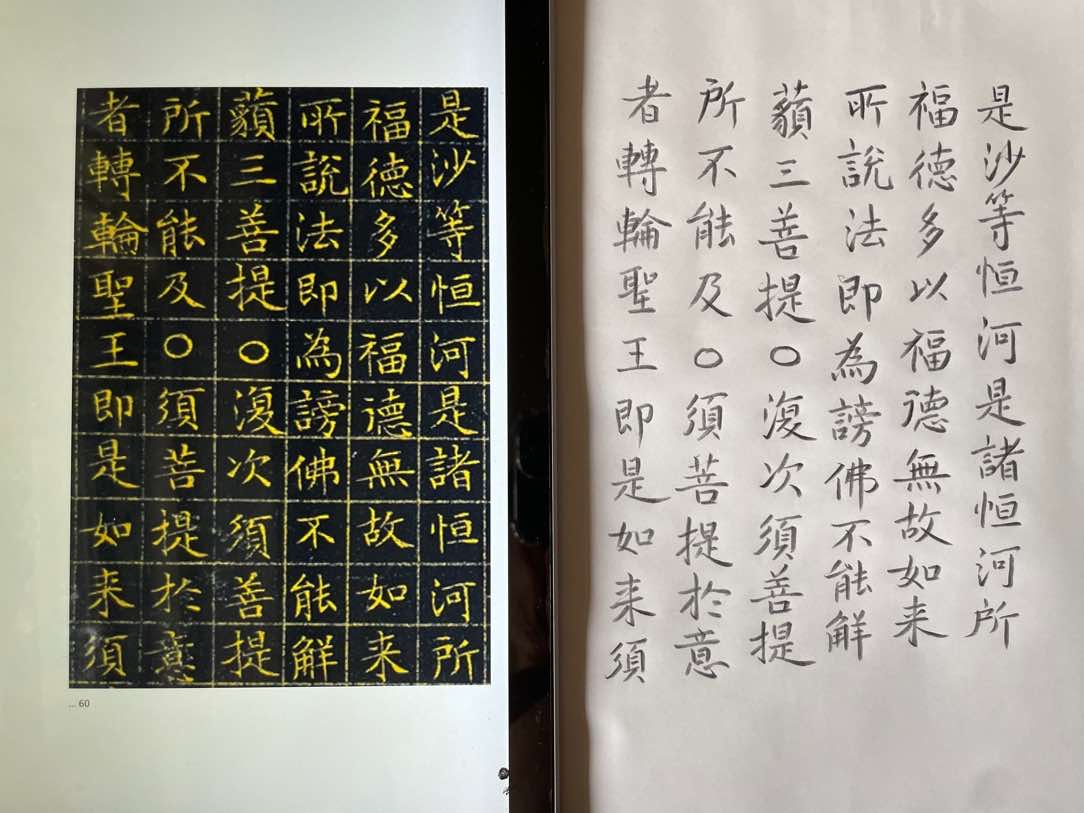 是沙等恒河是諸恒河所
福德多以福德無故如来
所説法即為謗佛不能解
藐三善提〇復次須善提
所不能及〇須菩提於意
者轉輪聖王即是如来須
... 60
是沙等恒河是諸恒河所
福德多以福德無故如来
所説法即為謗佛不能解
藐三善提〇復次須善提
所不能及〇須菩提於意
者轉輪聖王即是如来須